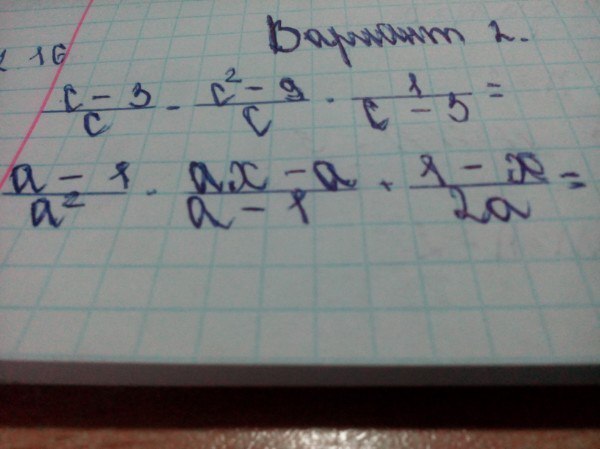 Вариант 2.
16
(c - 3)/c - (c² - 9)/c · 1/(c - 3) =
(a - 1)/a² · (ax - a)/(a - 1) + (1 - x)/2a =